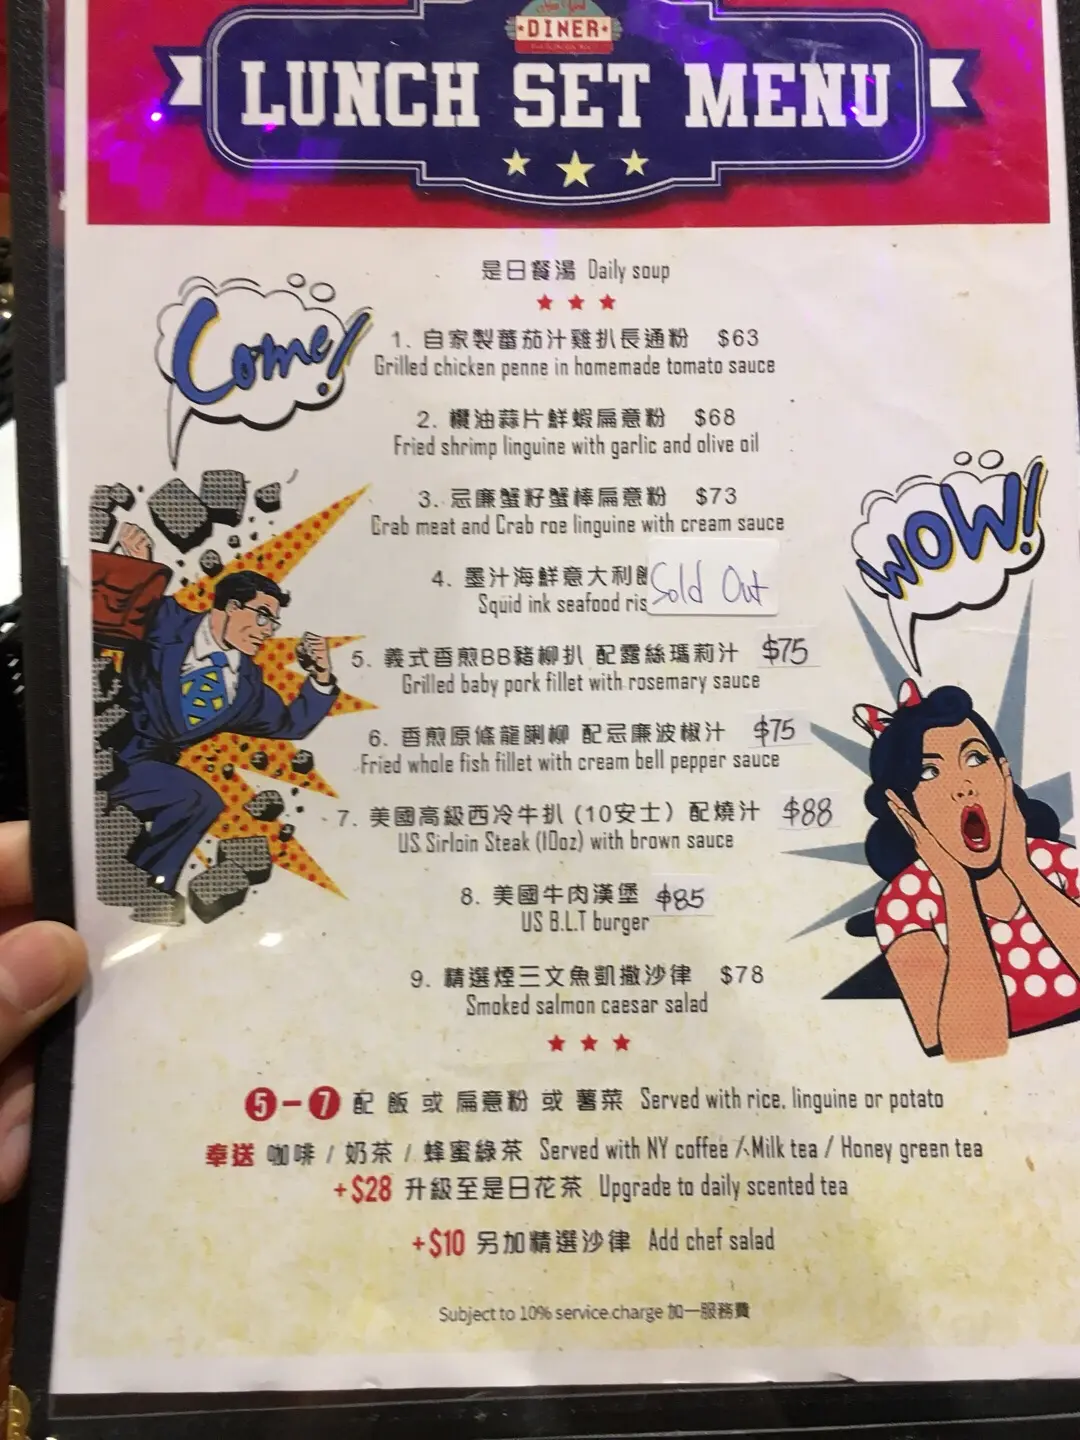 DINER
LUNCH SET MENU
是日餐湯 Daily soup
Come!
1. 自家製蕃茄汁雞扒長通粉 $63
Grilled chicken penne in homemade tomato sauce
2. 欖油蒜片鮮蝦扁意粉 $68
Fried shrimp linguine with garlic and olive oil
3. 忌廉蟹籽蟹棒扁意粉 $73
Crab meat and Crab roe linguine with cream sauce
WOW!
4. 墨汁海鮮意大利
Squid ink seafood ris
Sold Out
5. 義式香煎BB豬柳扒 配露絲瑪莉汁 $75
Grilled baby pork fillet with rosemary sauce
6. 香煎原條龍脷柳 配忌廉波椒汁 $75
Fried whole fish fillet with cream bell pepper sauce
7. 美國高級西冷牛扒 (10安士) 配燒汁 $88
US Sirloin Steak (10oz) with brown sauce
8. 美國牛肉漢堡 $85
US B.L.T burger
9. 精選煙三文魚凱撒沙律 $78
Smoked salmon caesar salad
5-7 配 飯 或 扁意粉 或 薯菜 Served with rice, linguine or potato
奉送 咖啡 / 奶茶 / 蜂蜜綠茶 Served with NY coffee / Milk tea / Honey green tea
+$28 升級至是日花茶 Upgrade to daily scented tea
+$10 另加精選沙律 Add chef salad
Subject to 10% service charge 加一服務費